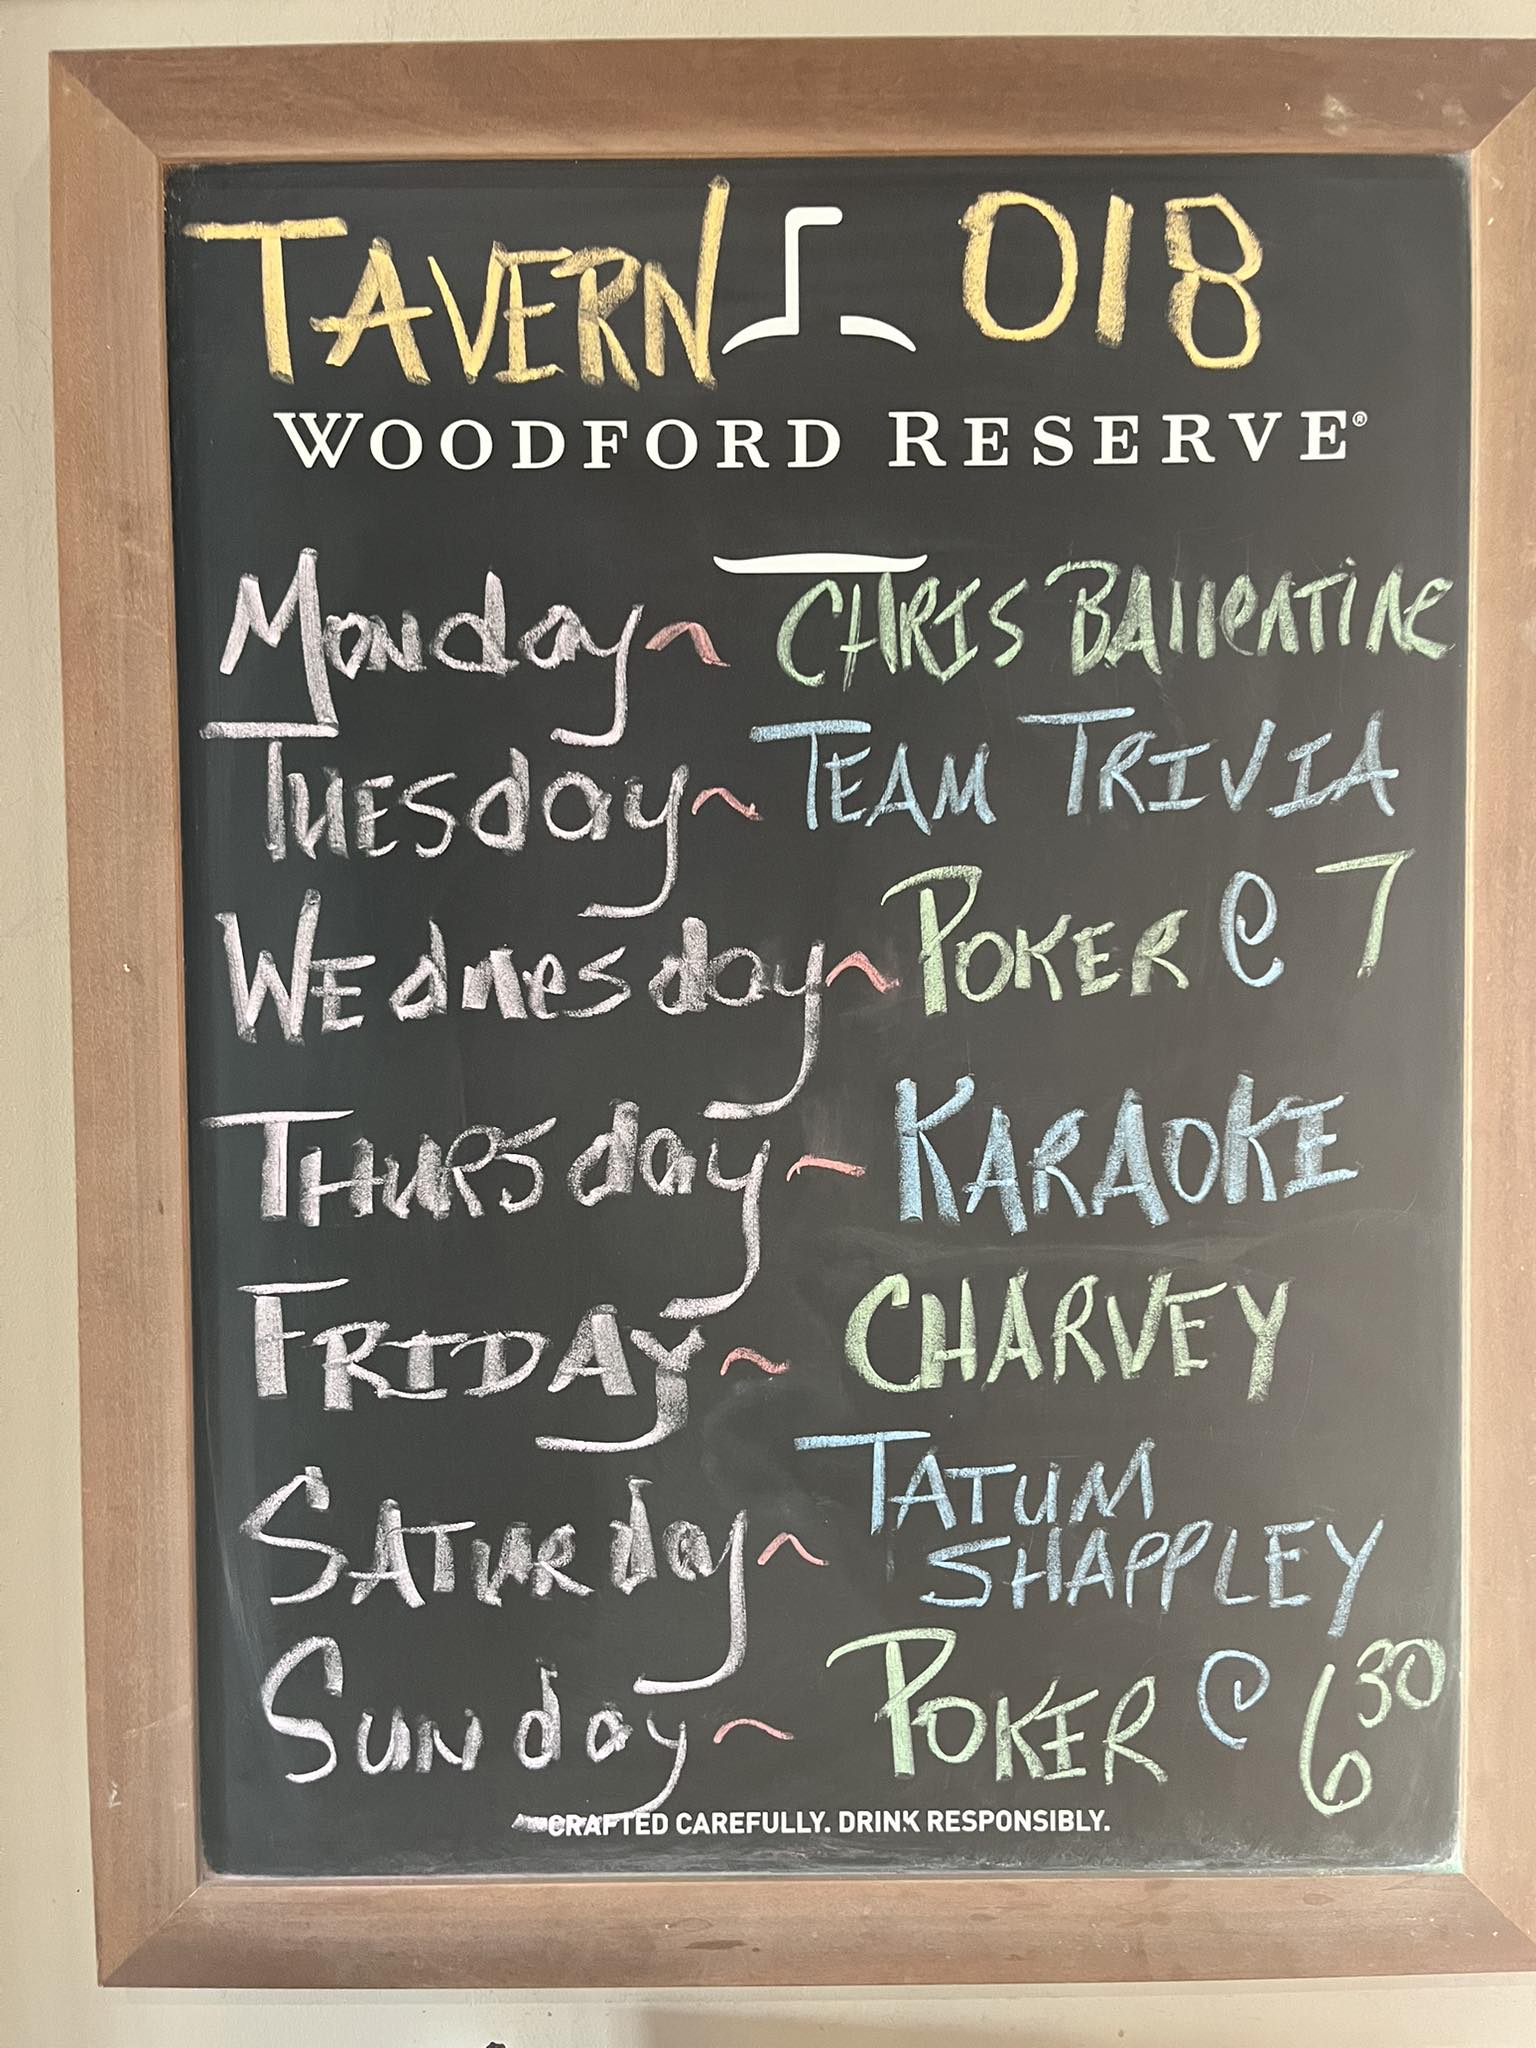 TAVERN 018
WOODFORD RESERVE®
Monday ~ CHRIS BAllENTINE
TUESday ~ TEAM TRIVIA
WEdnesday ~ POKER @ 7
THURSday ~ KARAOKE
FRIDAy ~ CHARVEY
SATURday ~ TATUM
SHAPPLEY
SUNday ~ POKER @ 6 30
CRAFTED CAREFULLY. DRINK RESPONSIBLY.